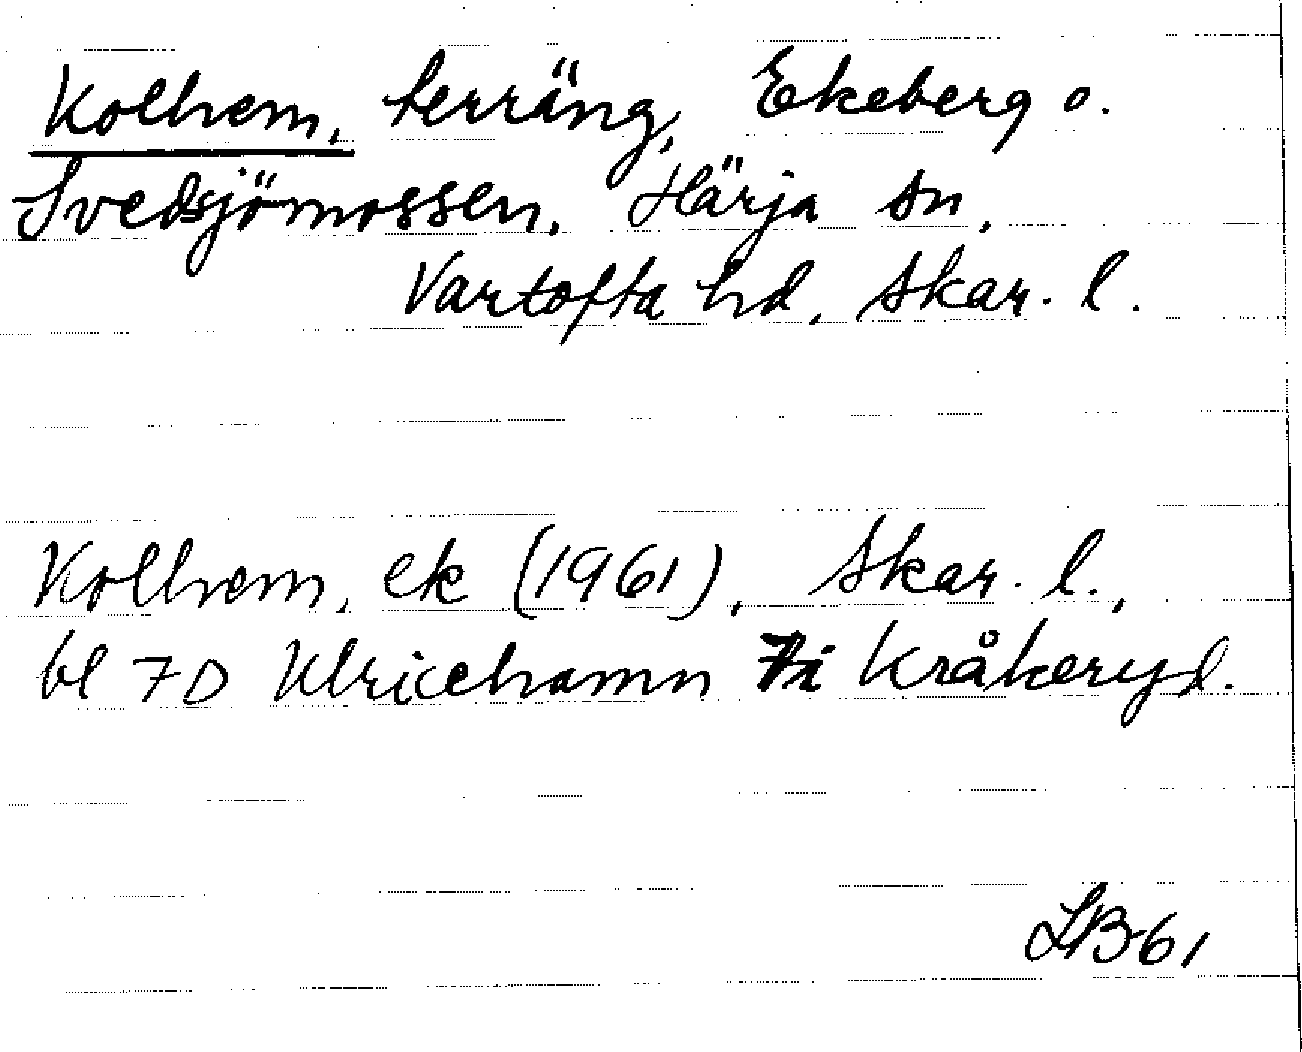 Kolhem, terräng, Ekeberg o.
Svedsjömossen, Härja sn,
Vartofta hd, Skar. l.
Kolhem, ek (1961), Skar. l.,
bl 7D Ulricehamn 7i Kråkeryd.
LB 61